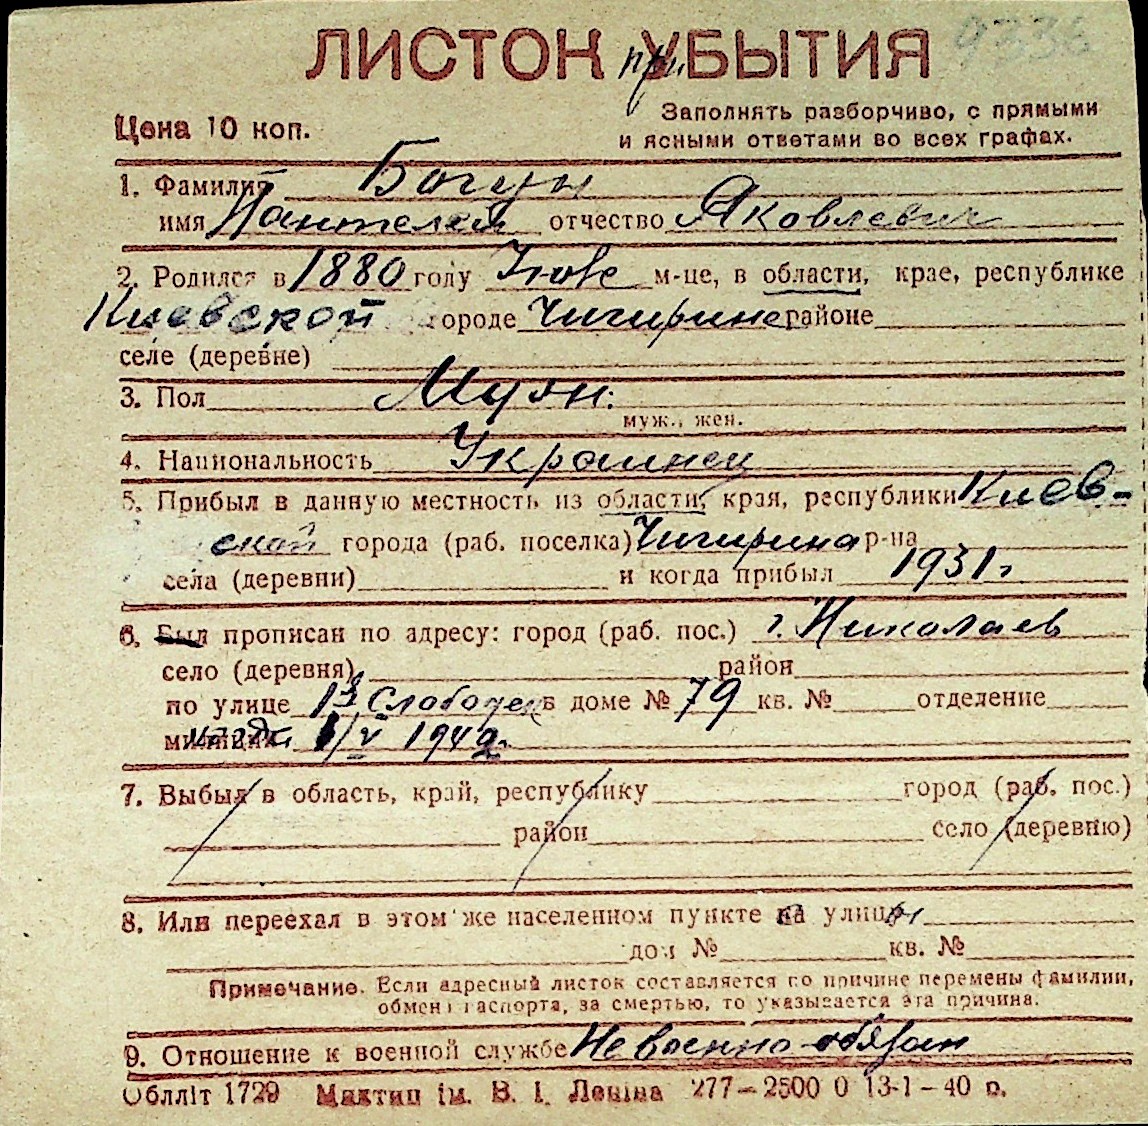 9336
ЛИСТОК при УБЫТИЯ
Цена 10 коп.
Заполнять разборчиво, с прямыми
и ясными ответами во всех графах.
1. Фамилия Богун
имя Пантелей отчество Яковлевич
2. Родился в 1880 году Июле м-це, в области, крае, республике
Киевской городе Чигирине районе
селе (деревне)
3. Пол Муж.
муж., жен.
4. Национальность Украинец
5. Прибыл в данную местность из области, края, республики Киев-
ской города (раб. поселка) Чигирина р-на
села (деревни) и когда прибыл 1931 г
6. Был прописан по адресу: город (раб. пос.) г. Николаев
село (деревня) район
по улице 13 Слободск в доме № 79 кв. № отделение
милиции 1/V 1942.
7. Выбыл в область, край, республику город (раб. пос.)
район село (деревню)
8. Или переехал в этом же населенном пункте с улицы
дом № кв. №
Примечание. Если адресный листок составляется по причине перемены фамилии,
обмена паспорта, за смертью, то указывается эта причина.
9. Отношение к военной службе Не военно-обязан
Облліт 1729 ім. В. І. Леніна 277—2500 0 13-1-40 р.